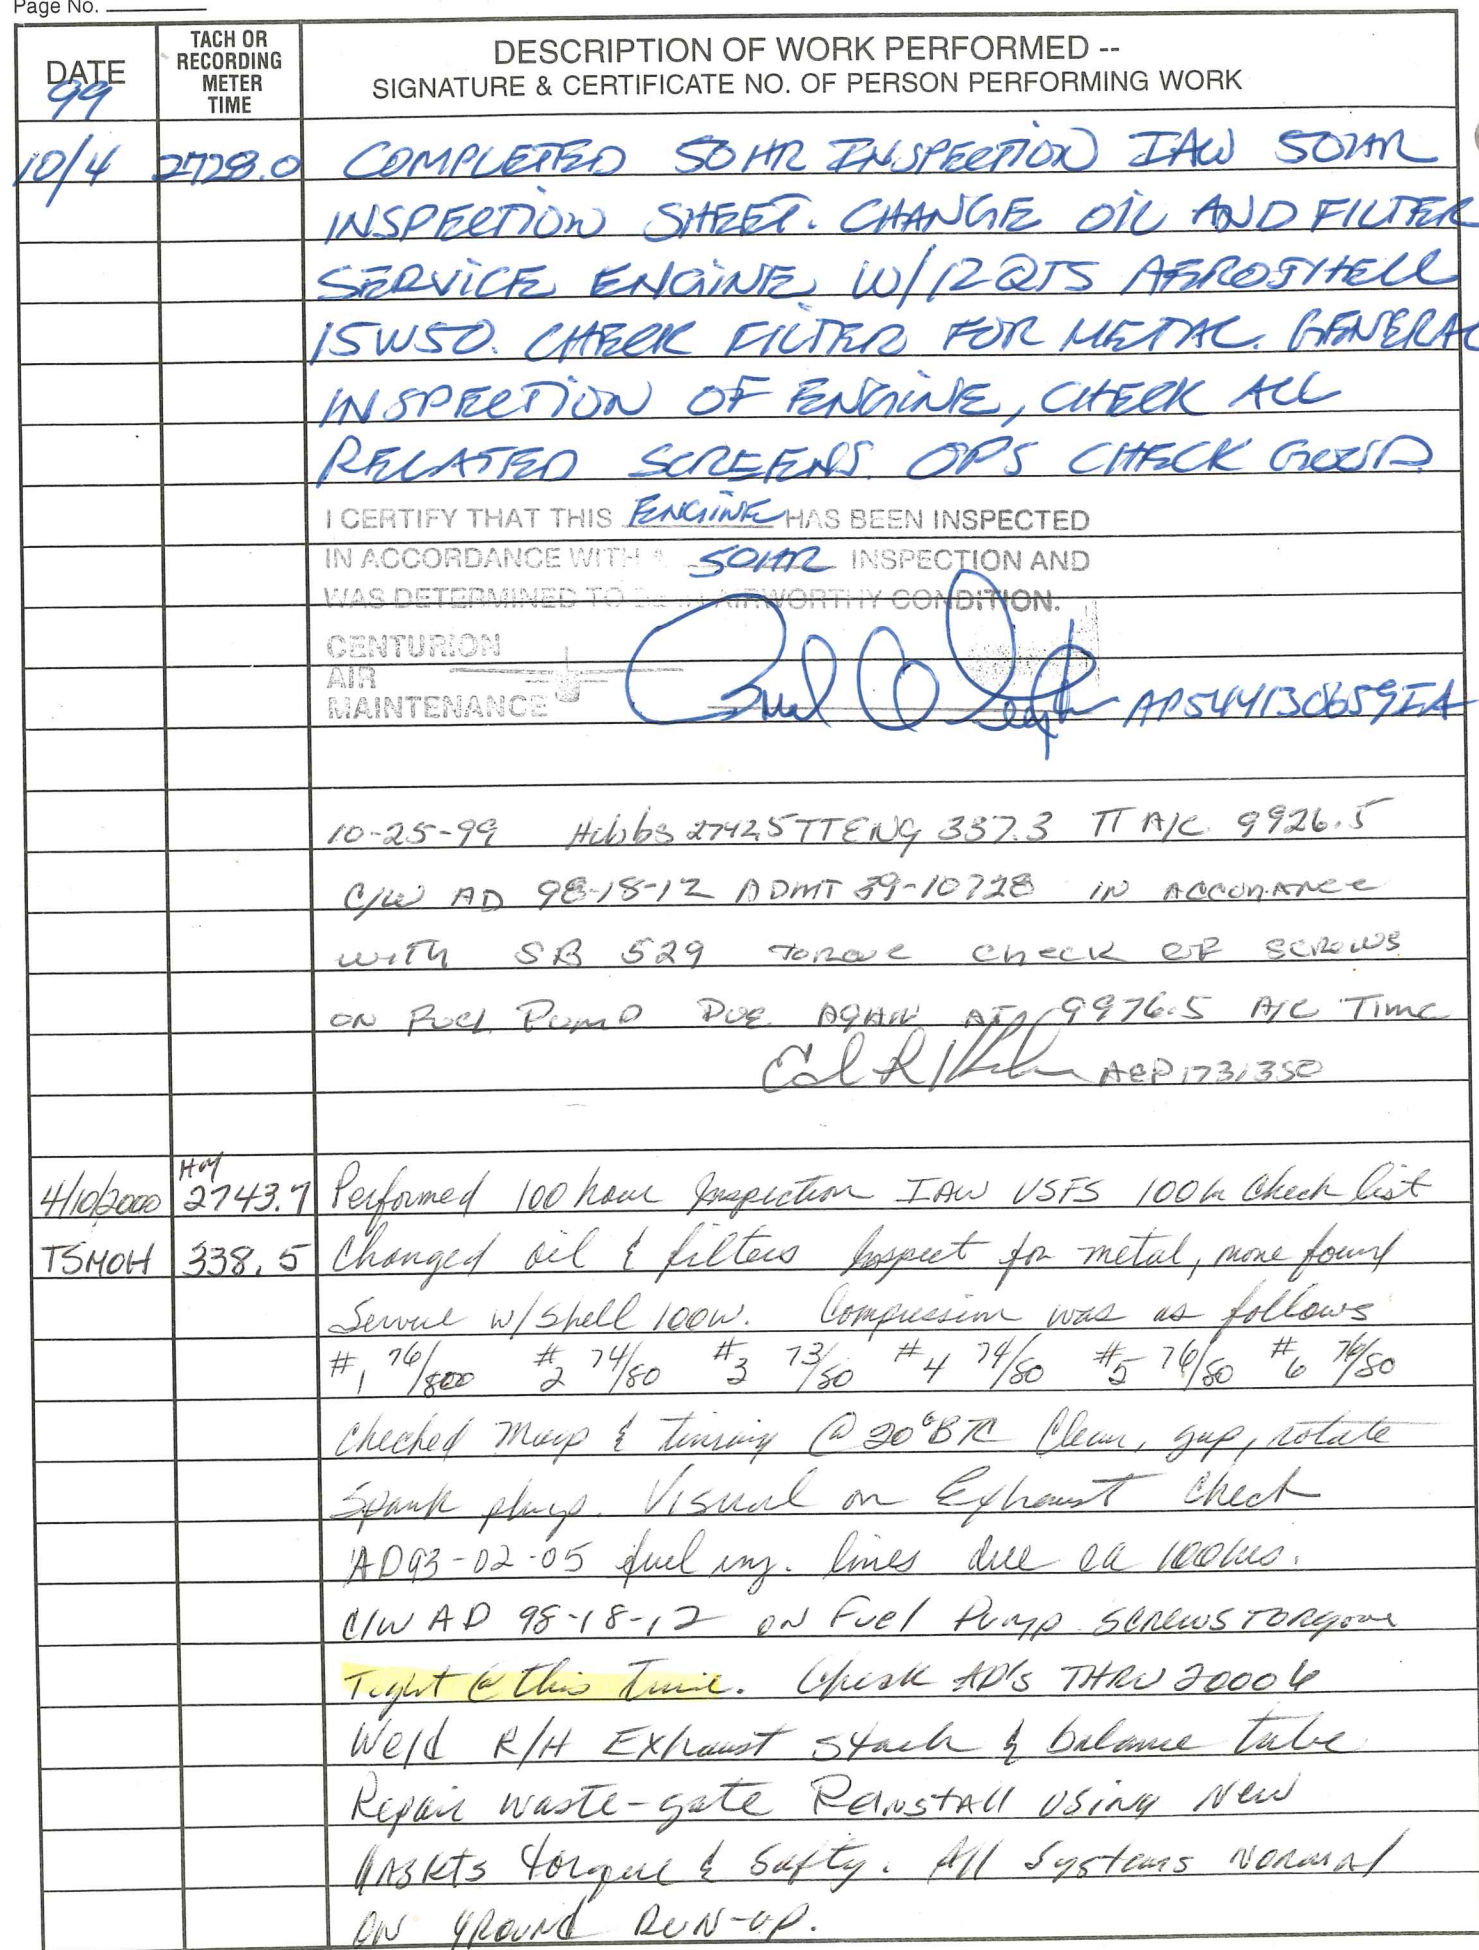 Page No.
DATE
99
TACH OR
RECORDING
METER
TIME
DESCRIPTION OF WORK PERFORMED --
SIGNATURE & CERTIFICATE NO. OF PERSON PERFORMING WORK
10/4 2728.0 COMPLETED 50HR INSPECTION IAW 50HR
INSPECTION SHEET. CHANGE OIL AND FILTER
SERVICE ENGINE W/12 QTS AEROSHELL
15W50. CHECK FILTER FOR METAL. GENERAL
INSPECTION OF ENGINE, CHECK ALL
RELATED SCREENS. OPS CHECK GOOD
I CERTIFY THAT THIS ENGINE HAS BEEN INSPECTED
IN ACCORDANCE WITH A 50HR INSPECTION AND
WAS DETERMINED TO BE IN AIRWORTHY CONDITION.
CENTURION
AIR
MAINTENANCE
AP544130659IA
10-25-99 Hobbs 2742.5 TTENG 337.3 TT A/C 9926.5
C/W AD 98-18-12 ADMT 39-10728 IN ACCORDANCE
WITH SB 529 TORQUE CHECK OF SCREWS
ON FUEL PUMP DUE AGAIN AT 9976.5 A/C TIME
A&P 1731350
4/10/2000 HM 2743.7 Performed 100 hour Inspection IAW USFS 100h Check list
TSMOH 338.5 Changed oil & filters Inspect for metal, none found
Service w/Shell 100w. Compression was as follows
#1 76/80 #2 74/80 #3 73/80 #4 74/80 #5 76/80 #6 76/80
Checked Mags & timing @ 20° BTC Clean, gap, rotate
Spark plugs. Visual on Exhaust Check
AD93-02-05 fuel inj. lines due ea 100hrs.
C/W AD 98-18-12 ON Fuel Pump SCREWS TORQUE
Tight @ this Time. Check AD's THRU 20006
Weld R/H Exhaust Stack & balance tube
Repair waste-gate Reinstall using New
GASKTS torque & Safty. All Systems Normal
ON GROUND RUN-UP.